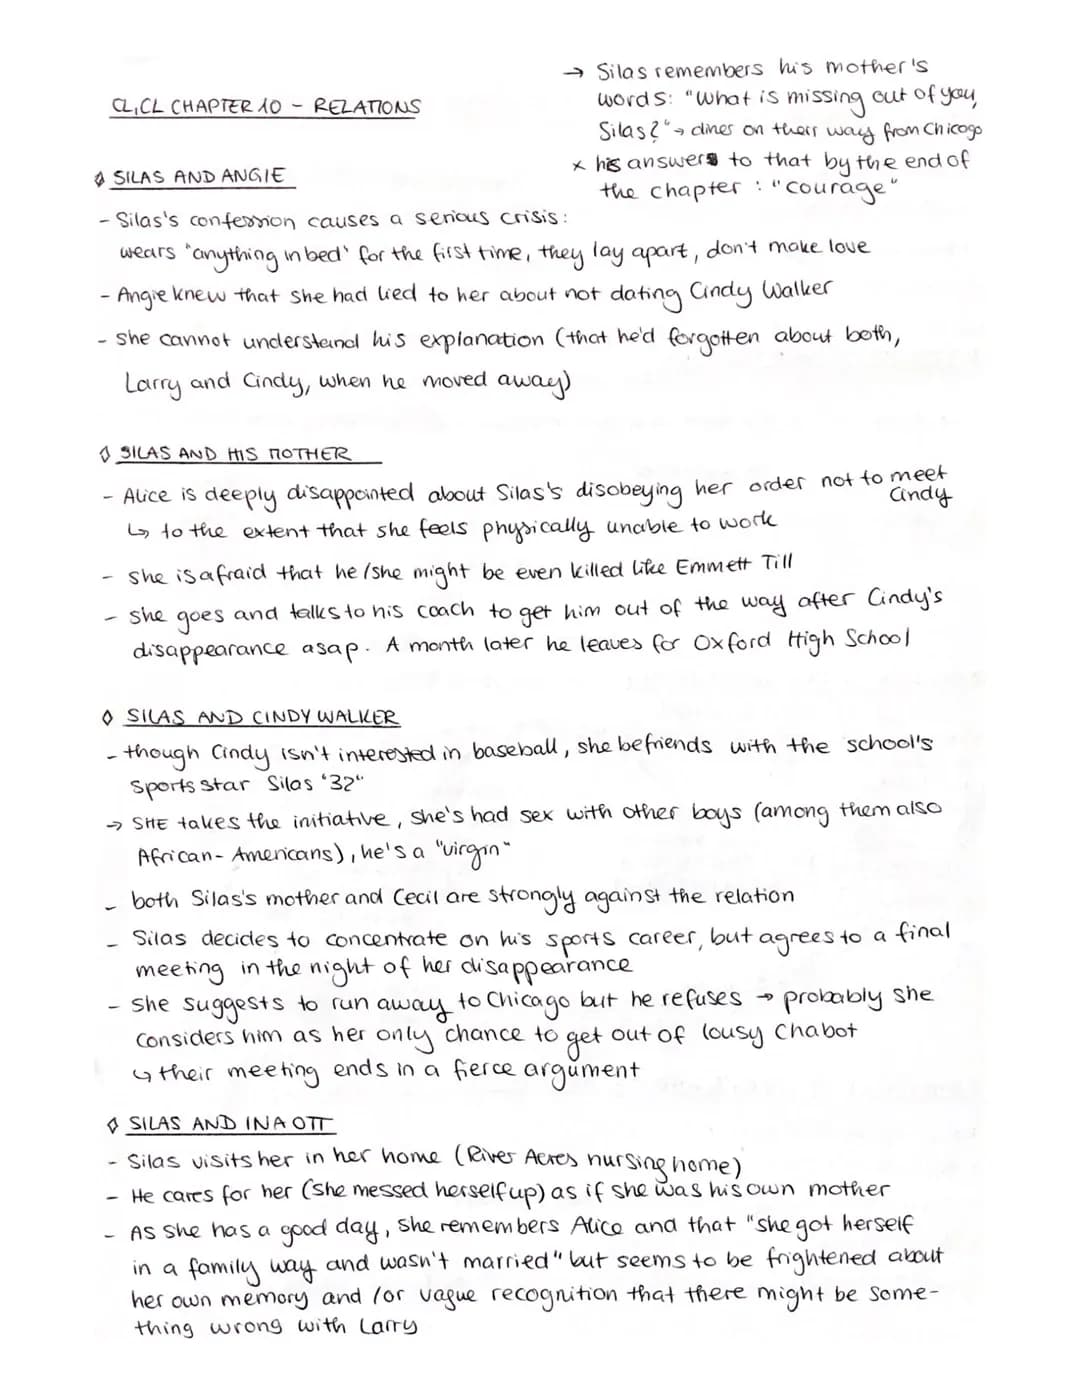 CL,CL CHAPTER 10 - RELATIONS
→ Silas remembers his mother's
words: "What is missing out of you,
Silas?" → diner on their way from Chicago
x his answers to that by the end of
the chapter : "courage"
◊ SILAS AND ANGIE
- Silas's confession causes a serious crisis:
wears "anything in bed" for the first time, they lay apart, don't make love
- Angie knew that she had lied to her about not dating Cindy Walker
- she cannot understand his explanation (that he'd forgotten about both,
Larry and Cindy, when he moved away)
◊ SILAS AND HIS MOTHER
- Alice is deeply disappointed about Silas's disobeying her order not to meet
Cindy
↳ to the extent that she feels physically unable to work
- she is afraid that he/she might be even killed like Emmett Till
- she goes and talks to his coach to get him out of the way after Cindy's
disappearance asap. A month later he leaves for Oxford High School
◊ SILAS AND CINDY WALKER
- though Cindy isn't interested in baseball, she befriends with the school's
sports star Silas '32"
→ SHE takes the initiative, she's had sex with other boys (among them also
African-Americans), he's a "virgin"
- both Silas's mother and Cecil are strongly against the relation
- Silas decides to concentrate on his sports career, but agrees to a final
meeting in the night of her disappearance
- She suggests to run away to Chicago but he refuses → probably she
considers him as her only chance to get out of lousy Chabot
↳ their meeting ends in a fierce argument
◊ SILAS AND INA OTT
- Silas visits her in her home (River Acres nursing home)
- He cares for her (she messed herself up) as if she was his own mother
- As she has a good day, she remembers Alice and that "she got herself
in a family way and wasn't married" but seems to be frightened about
her own memory and /or vague recognition that there might be some-
thing wrong with Larry